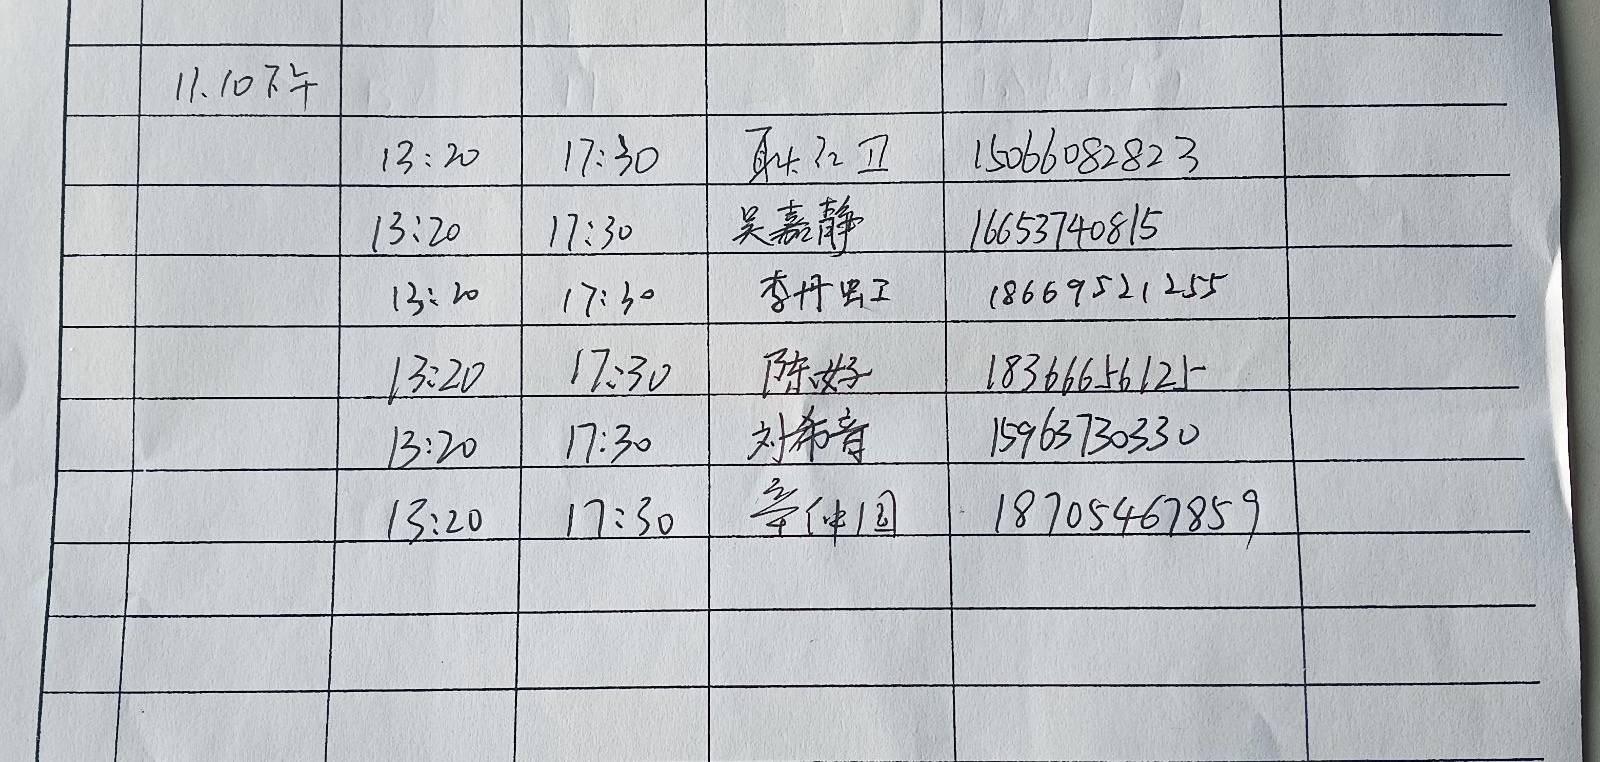 11.10下午
13:20 17:30 15066082823
13:20 17:30 吴嘉静 16653740815
13:20 17:30 李丹虹 18669521255
13:20 17:30 陈好 18366656125
13:20 17:30 刘希音 15963730330
13:20 17:30 18705467859